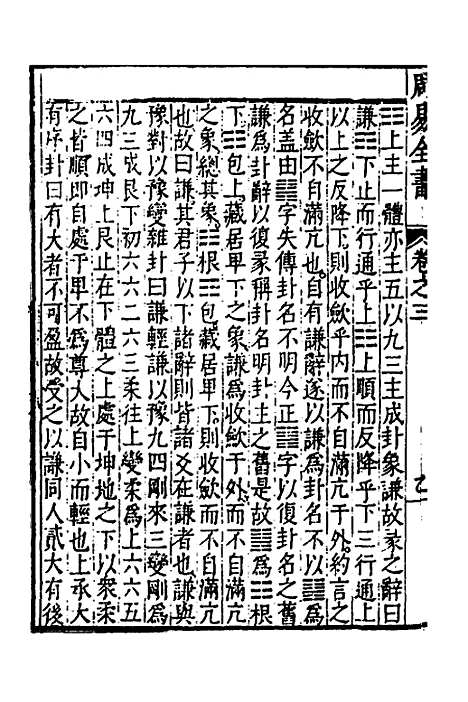 周易全書
卷之三
☷上主一體亦主五以九三主成卦象謙故彖之辭曰
謙☶下止而行通乎上☷上順而反降乎下三行通上
以上之反降下則收斂乎内而不自滿亢于外約言之
收斂不自滿亢也自有謙辭遂以謙為卦名不以䷎為
名盖由䷎字失傳卦名不明今正䷎字以復卦名之舊
謙為卦辭以復彖稱卦名明卦主之舊是故䷎☶根
下☷包上藏居卑下之象謙為收斂于外而不自滿亢
之象總其象☶根☷包藏居卑下則收斂而不自滿亢
也故曰謙其君子以下諸辭則皆諸爻在謙者也謙與
豫對以豫變雜卦曰謙輕謙以豫九四剛來三變剛為
九三成艮下初六六二六三柔往上變柔為上六六五
六四成坤上艮止在下體之上處于坤地之下以衆柔
之皆順即自處于卑不為尊大故自小而輕也上承大
有序卦曰有大者不可盈故受之以謙同人貳大有後